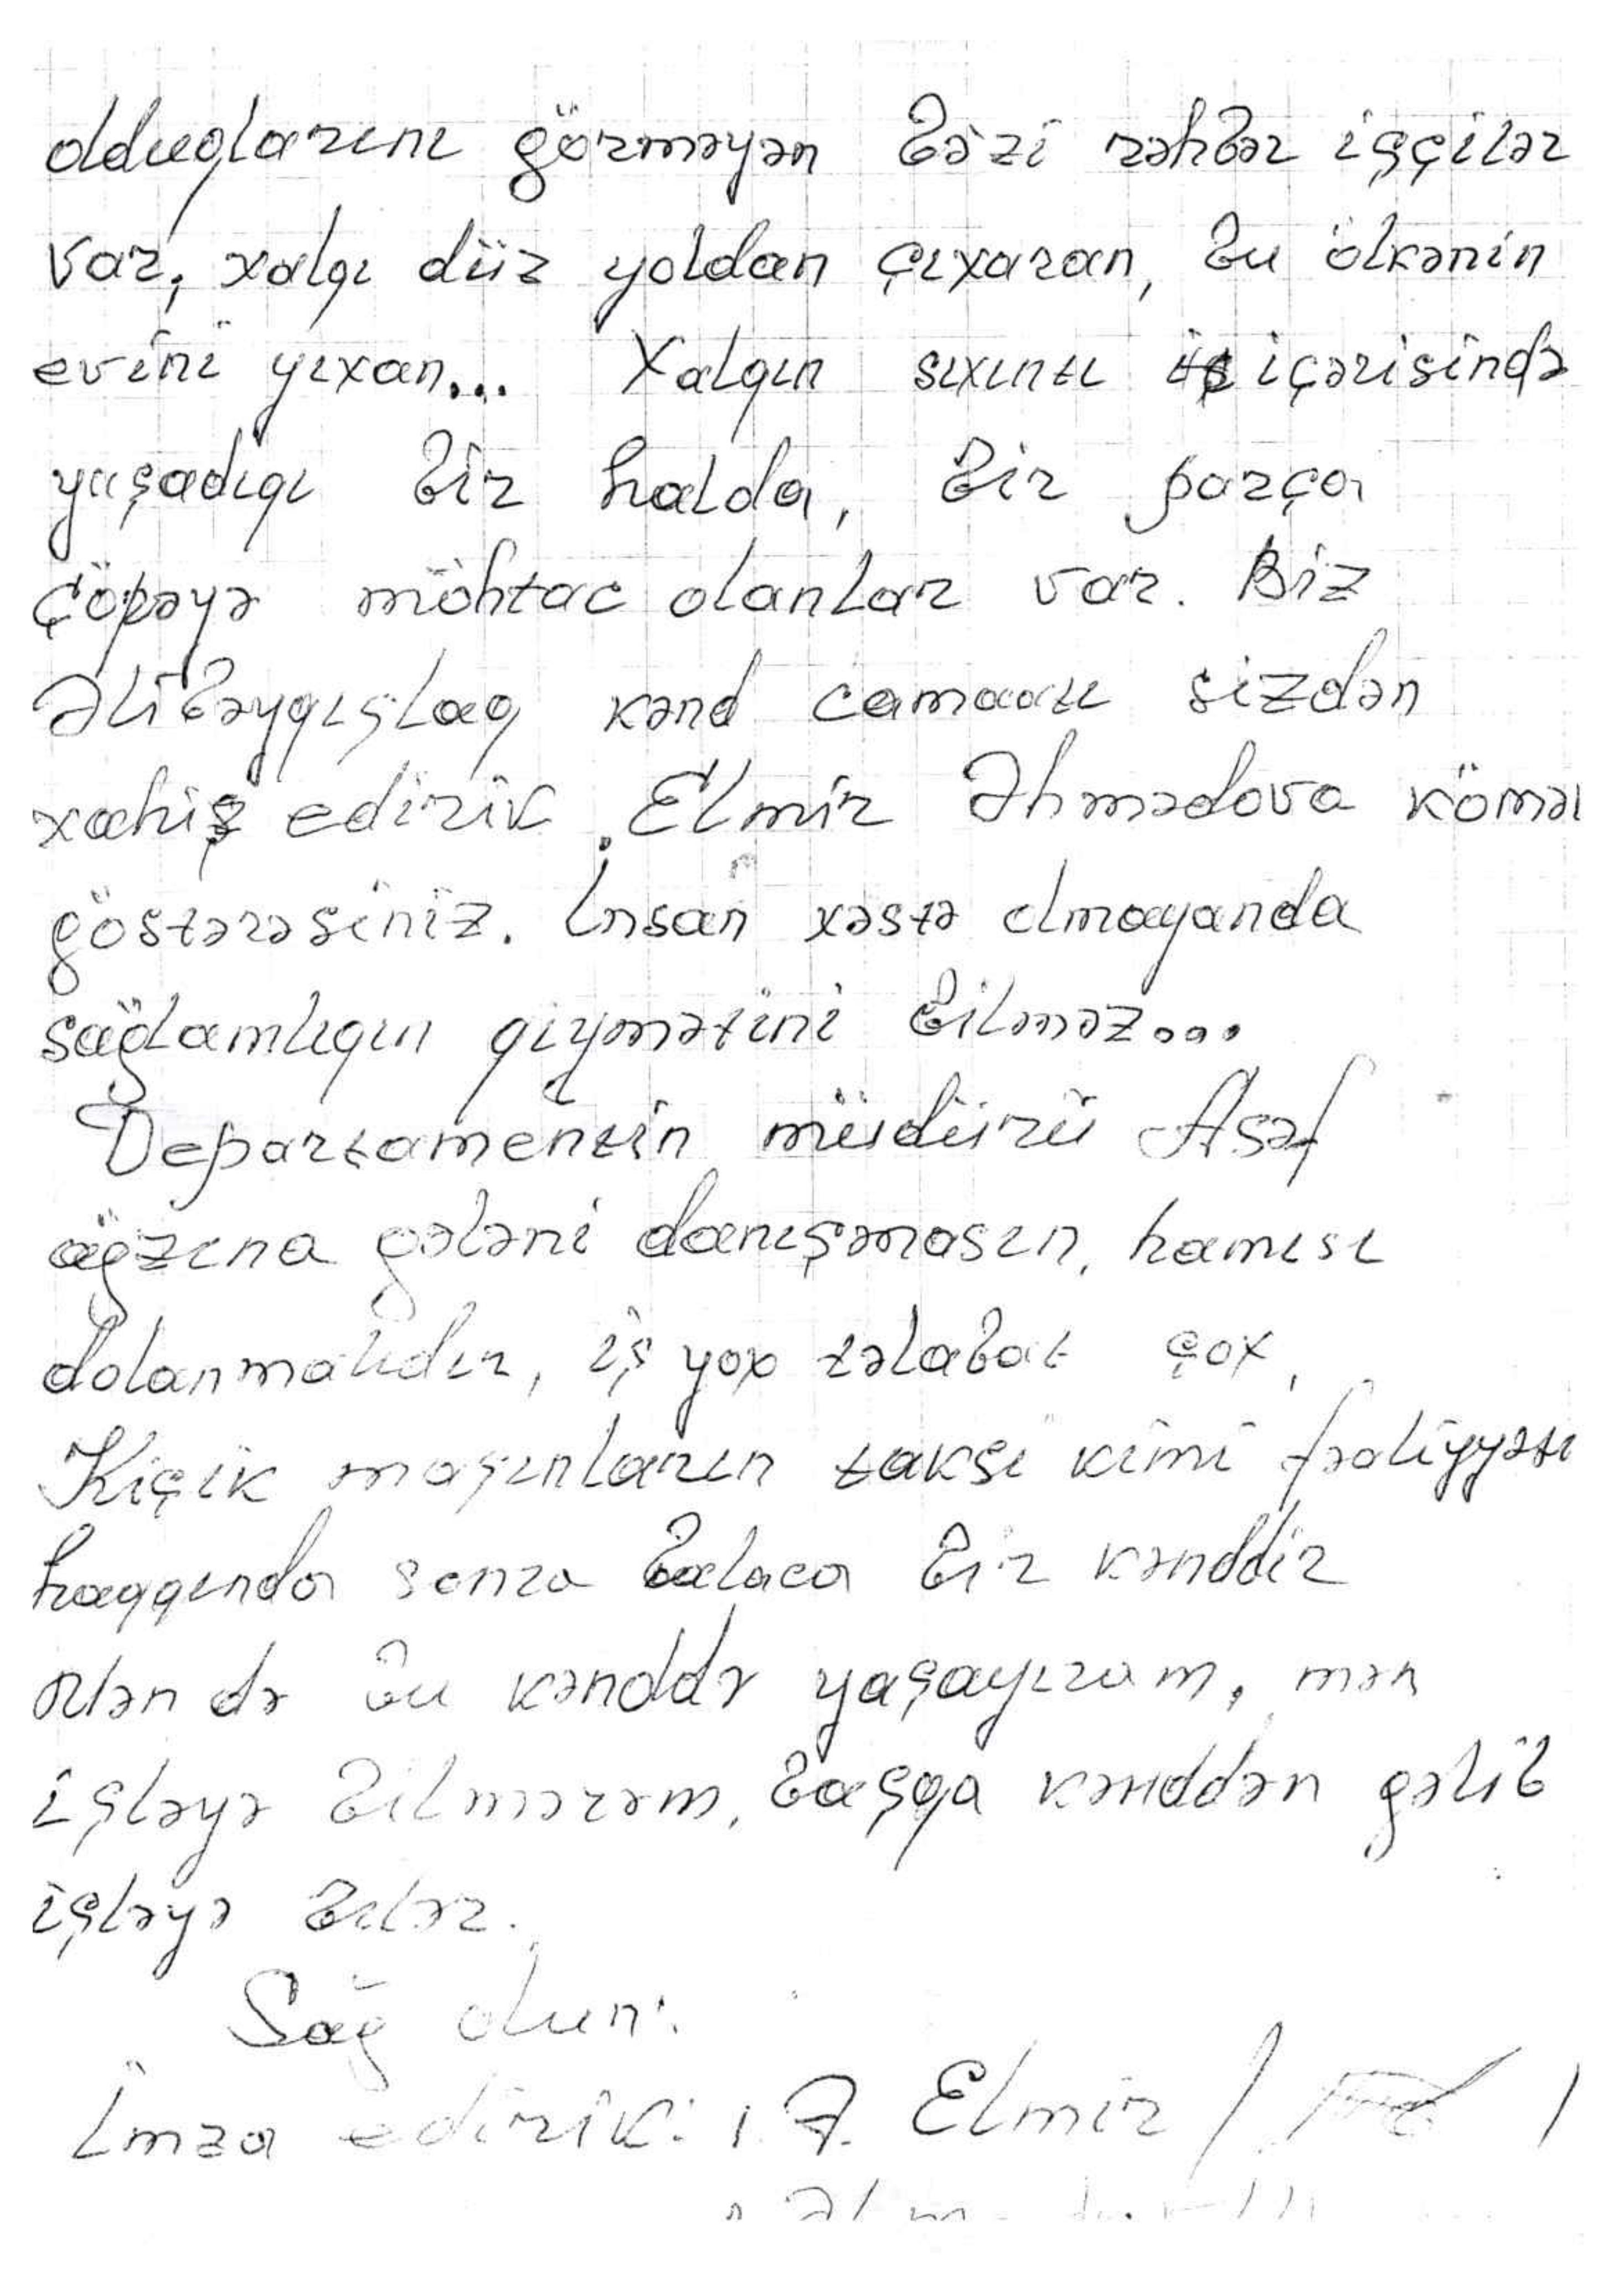 olduqlarını görməyən bəzi rəhbər işçilər
var, xalqı düz yoldan çıxaran, bu ölkənin
evini yıxan... Xalqın sıxıntı içərisində
yaşadıqı bir halda, bir parça
çöpəyə möhtac olanlar var. Biz
Əlibəyqışlaq kənd camaatı sizdən
xahiş edirik Elmir Əhmədova kömə
göstərəsiniz. İnsan xəstə olmayanda
sağlamlıqın qiymətini bilməz...
Departamentin müdürü Asəf
ağzına gələni danışmasın, hamısı
dolanmalıdır, iş yox tələbat çox,
Kiçik maşınların taksi kimi fəaliyyəti
haqqında sonra balaca bir kənddir
Mən də bu kənddə yaşayıram, mən
işləyə bilmərəm, başqa kənddən gəlib
işləyə bilər.
Sağ olun.
İmza edirik: 1. Ə. Elmir / /